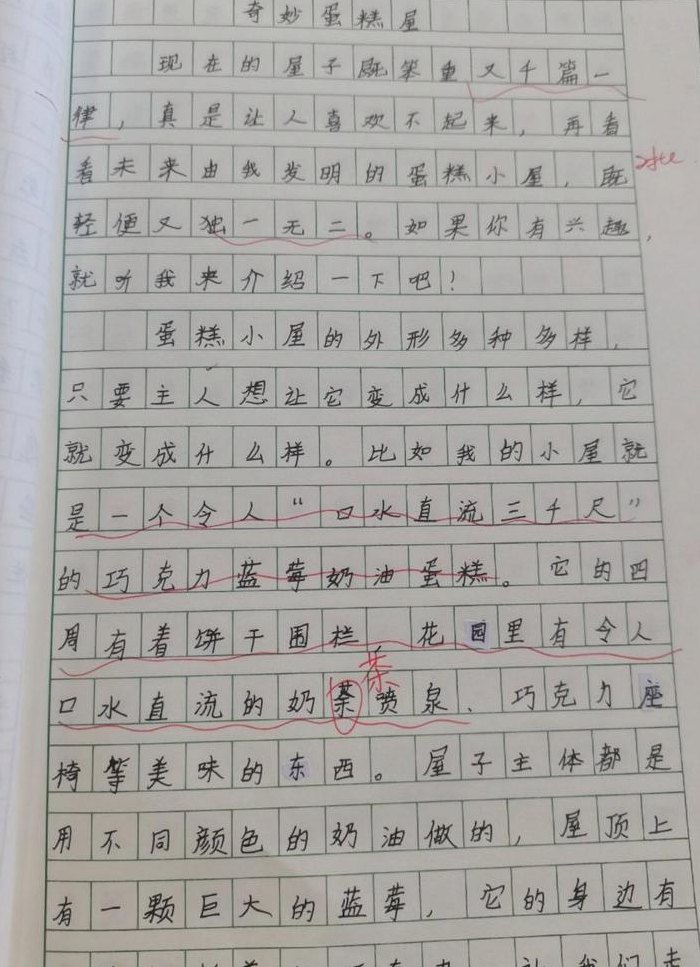 奇妙蛋糕屋
现在的屋子既笨重又千篇一
律，真是让人喜欢不起来，再看
看未来由我发明的蛋糕小屋，既
轻便又独一无二。如果你有兴趣，
就听我来介绍一下吧！
蛋糕小屋的外形多种多样，
只要主人想让它变成什么样，它
就变成什么样。比如我的小屋就
是一个令人“口水直流三千尺”
的巧克力蓝莓奶油蛋糕。它的四
周有着饼干围栏 花园里有令人
茶
口水直流的奶喷泉、巧克力座
椅等美味的东西。屋子主体都是
用不同颜色的奶油做的，屋顶上
有一颗巨大的蓝莓，它的身边有
让我们走